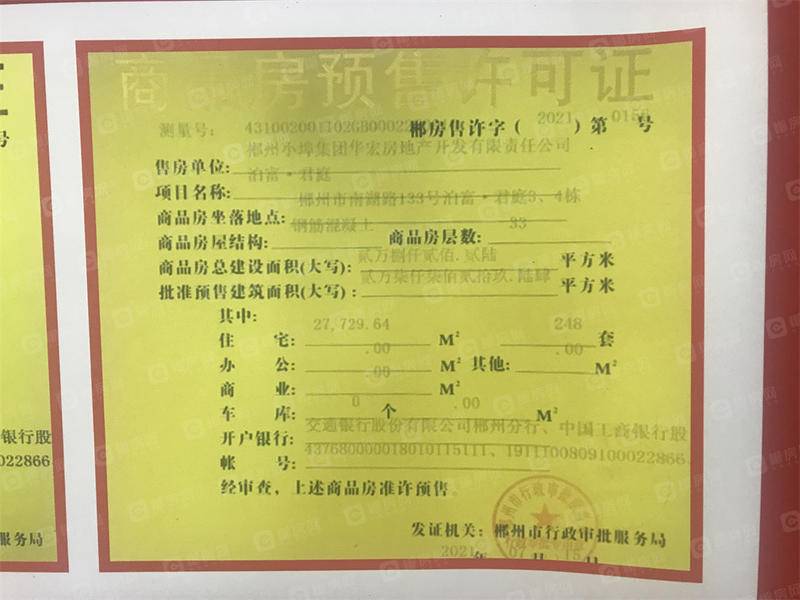 商 房预售许可证
测量号: 431002001102GB0002
郴房售许字(2021)第015 号
郴州小埠集团华宏房地产开发有限责任公司
售房单位:
泊富·君庭
项目名称:
郴州市南湖路133号泊富·君庭3、4栋
商品房坐落地点:
钢筋混凝土 33
商品房屋结构: 商品房层数:
贰万捌仟贰佰.贰陆
商品房总建设面积(大写): 平方米
贰万柒仟柒佰贰拾玖.陆肆
批准预售建筑面积(大写): 平方米
其中:
27,729.64 248
住 宅: M² 套
.00 .00
办 公: M² 其他: M²
.00
商 业: M²
0 .00
车 库: 个 M²
交通银行股份有限公司郴州分行、中国工商银行股
开户银行:
437680000018010115111、1911100809100022866
帐 号:
经审查,上述商品房准许预售。
发证机关:郴州市行政审批服务局
2021 年 07 月 15 日
号
银行股
0022866
服务局